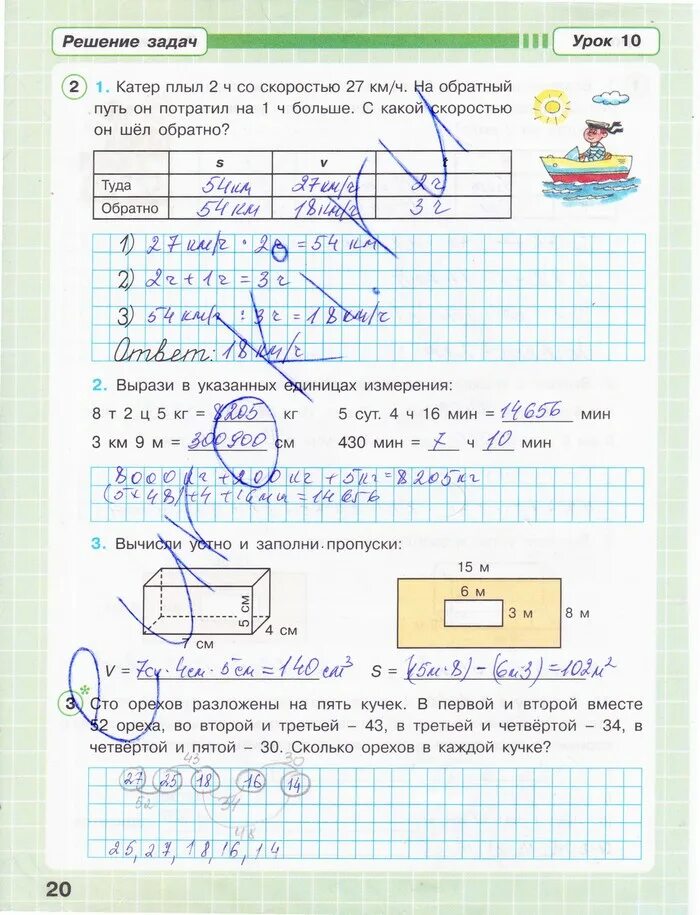 Решение задач Урок 10
2 1. Катер плыл 2 ч со скоростью 27 км/ч. На обратный
путь он потратил на 1 ч больше. С какой скоростью
он шёл обратно?
s v t
Туда 54 км 27 км/ч 2 ч
Обратно 54 км 18 км/ч 3 ч
1) 27 км/ч · 2 = 54 км
2) 2 ч + 1 ч = 3 ч
3) 54 км/ч : 3 ч = 18 км/ч
Ответ: 18 км/ч
2. Вырази в указанных единицах измерения:
8 т 2 ц 5 кг = 8205 кг 5 сут. 4 ч 16 мин = 14656 мин
3 км 9 м = 300900 см 430 мин = 7 ч 10 мин
8000 кг + 200 кг + 5 кг = 8205 кг
(5 × 48) + 4 + 16 мин = 14656
3. Вычисли устно и заполни пропуски:
15 м
6 м
3 м 8 м
5 см
4 см
7 см
V = 7см · 4см · 5см = 140 см³ S = (15м · 8) - (6м · 3) = 102 м²
*
3 Сто орехов разложены на пять кучек. В первой и второй вместе
52 ореха, во второй и третьей – 43, в третьей и четвёртой – 34, в
четвёртой и пятой – 30. Сколько орехов в каждой кучке?
43 30
27 25 18 16 14
52 34
48
25, 27, 18, 16, 14
20